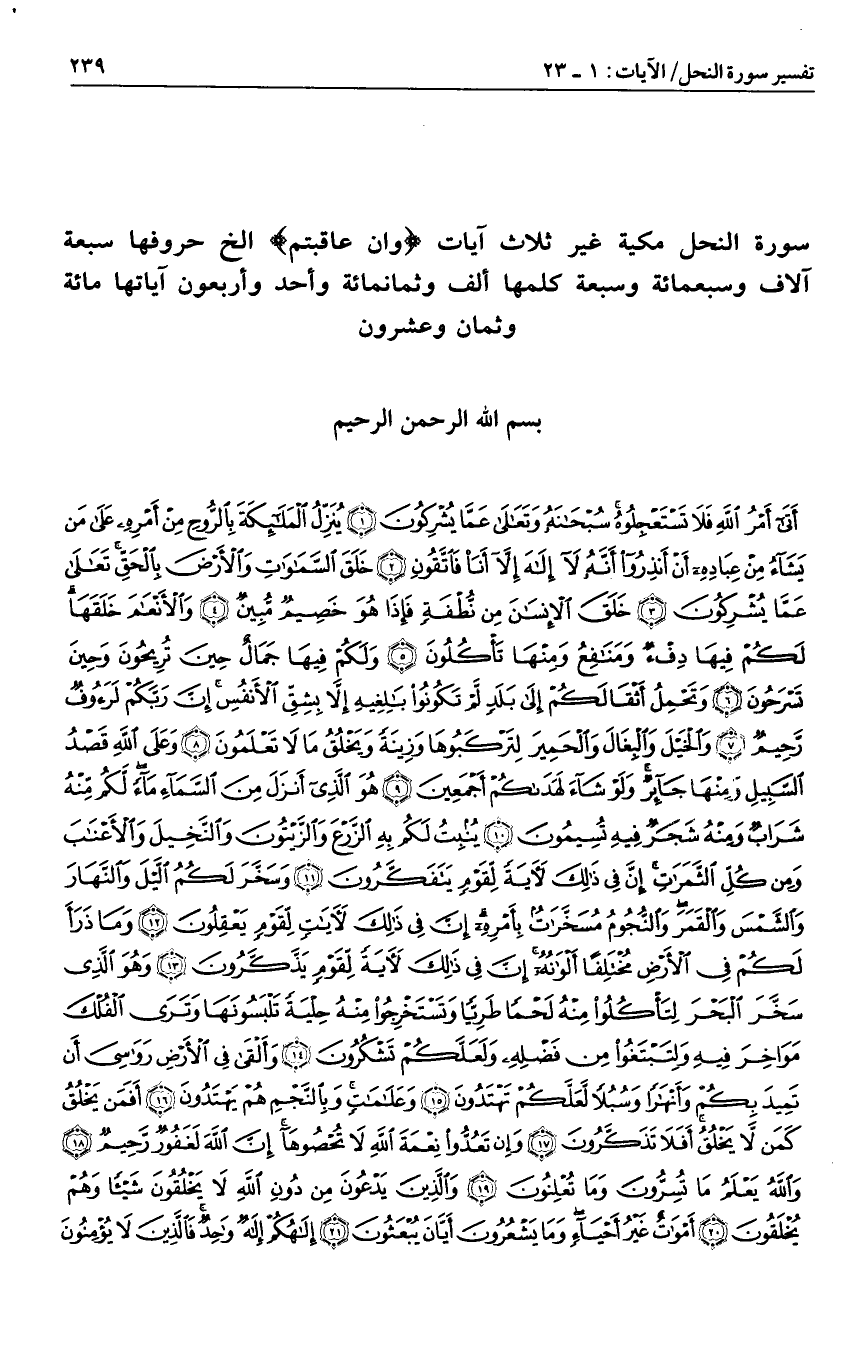 تفسير سورة النحل/ الآيات: ١ ـ ٢٣ ٢٣٩
سورة النحل مكية غير ثلاث آيات ﴿وان عاقبتم﴾ الخ حروفها سبعة
آلاف وسبعمائة وسبعة كلمها ألف وثمانمائة وأحد وأربعون آياتها مائة
وثمان وعشرون
بسم الله الرحمن الرحيم
أَتَىٰٓ أَمْرُ ٱللَّهِ فَلَا تَسْتَعْجِلُوهُ ۚ سُبْحَٰنَهُۥ وَتَعَٰلَىٰ عَمَّا يُشْرِكُونَ ﴿١﴾ يُنَزِّلُ ٱلْمَلَٰٓئِكَةَ بِٱلرُّوحِ مِنْ أَمْرِهِۦ عَلَىٰ مَن
يَشَآءُ مِنْ عِبَادِهِۦٓ أَنْ أَنذِرُوٓا۟ أَنَّهُۥ لَآ إِلَٰهَ إِلَّآ أَنَا۠ فَٱتَّقُونِ ﴿٢﴾ خَلَقَ ٱلسَّمَٰوَٰتِ وَٱلْأَرْضَ بِٱلْحَقِّ ۚ تَعَٰلَىٰ
عَمَّا يُشْرِكُونَ ﴿٣﴾ خَلَقَ ٱلْإِنسَٰنَ مِن نُّطْفَةٍ فَإِذَا هُوَ خَصِيمٌ مُّبِينٌ ﴿٤﴾ وَٱلْأَنْعَٰمَ خَلَقَهَا ۗ
لَكُمْ فِيهَا دِفْءٌ وَمَنَٰفِعُ وَمِنْهَا تَأْكُلُونَ ﴿٥﴾ وَلَكُمْ فِيهَا جَمَالٌ حِينَ تُرِيحُونَ وَحِينَ
تَسْرَحُونَ ﴿٦﴾ وَتَحْمِلُ أَثْقَالَكُمْ إِلَىٰ بَلَدٍ لَّمْ تَكُونُوا۟ بَٰلِغِيهِ إِلَّا بِشِقِّ ٱلْأَنفُسِ ۚ إِنَّ رَبَّكُمْ لَرَءُوفٌ
رَّحِيمٌ ﴿٧﴾ وَٱلْخَيْلَ وَٱلْبِغَالَ وَٱلْحَمِيرَ لِتَرْكَبُوهَا وَزِينَةً ۚ وَيَخْلُقُ مَا لَا تَعْلَمُونَ ﴿٨﴾ وَعَلَى ٱللَّهِ قَصْدُ
ٱلسَّبِيلِ وَمِنْهَا جَآئِرٌ ۚ وَلَوْ شَآءَ لَهَدَىٰكُمْ أَجْمَعِينَ ﴿٩﴾ هُوَ ٱلَّذِىٓ أَنزَلَ مِنَ ٱلسَّمَآءِ مَآءً ۖ لَّكُم مِّنْهُ
شَرَابٌ وَمِنْهُ شَجَرٌ فِيهِ تُسِيمُونَ ﴿١٠﴾ يُنۢبِتُ لَكُم بِهِ ٱلزَّرْعَ وَٱلزَّيْتُونَ وَٱلنَّخِيلَ وَٱلْأَعْنَٰبَ
وَمِن كُلِّ ٱلثَّمَرَٰتِ ۗ إِنَّ فِى ذَٰلِكَ لَءَايَةً لِّقَوْمٍ يَتَفَكَّرُونَ ﴿١١﴾ وَسَخَّرَ لَكُمُ ٱلَّيْلَ وَٱلنَّهَارَ
وَٱلشَّمْسَ وَٱلْقَمَرَ ۖ وَٱلنُّجُومُ مُسَخَّرَٰتٌۢ بِأَمْرِهِۦٓ ۗ إِنَّ فِى ذَٰلِكَ لَءَايَٰتٍ لِّقَوْمٍ يَعْقِلُونَ ﴿١٢﴾ وَمَا ذَرَأَ
لَكُمْ فِى ٱلْأَرْضِ مُخْتَلِفًا أَلْوَٰنُهُۥٓ ۗ إِنَّ فِى ذَٰلِكَ لَءَايَةً لِّقَوْمٍ يَذَّكَّرُونَ ﴿١٣﴾ وَهُوَ ٱلَّذِى
سَخَّرَ ٱلْبَحْرَ لِتَأْكُلُوا۟ مِنْهُ لَحْمًا طَرِيًّا وَتَسْتَخْرِجُوا۟ مِنْهُ حِلْيَةً تَلْبَسُونَهَا وَتَرَى ٱلْفُلْكَ
مَوَاخِرَ فِيهِ وَلِتَبْتَغُوا۟ مِن فَضْلِهِۦ وَلَعَلَّكُمْ تَشْكُرُونَ ﴿١٤﴾ وَأَلْقَىٰ فِى ٱلْأَرْضِ رَوَٰسِىَ أَن
تَمِيدَ بِكُمْ وَأَنْهَٰرًا وَسُبُلًا لَّعَلَّكُمْ تَهْتَدُونَ ﴿١٥﴾ وَعَلَٰمَٰتٍ ۚ وَبِٱلنَّجْمِ هُمْ يَهْتَدُونَ ﴿١٦﴾ أَفَمَن يَخْلُقُ
كَمَن لَّا يَخْلُقُ ۗ أَفَلَا تَذَكَّرُونَ ﴿١٧﴾ وَإِن تَعُدُّوا۟ نِعْمَةَ ٱللَّهِ لَا تُحْصُوهَآ ۗ إِنَّ ٱللَّهَ لَغَفُورٌ رَّحِيمٌ ﴿١٨﴾
وَٱللَّهُ يَعْلَمُ مَا تُسِرُّونَ وَمَا تُعْلِنُونَ ﴿١٩﴾ وَٱلَّذِينَ يَدْعُونَ مِن دُونِ ٱللَّهِ لَا يَخْلُقُونَ شَيْـًٔا وَهُمْ
يُخْلَقُونَ ﴿٢٠﴾ أَمْوَٰتٌ غَيْرُ أَحْيَآءٍ ۖ وَمَا يَشْعُرُونَ أَيَّانَ يُبْعَثُونَ ﴿٢١﴾ إِلَٰهُكُمْ إِلَٰهٌ وَٰحِدٌ ۚ فَٱلَّذِينَ لَا يُؤْمِنُونَ